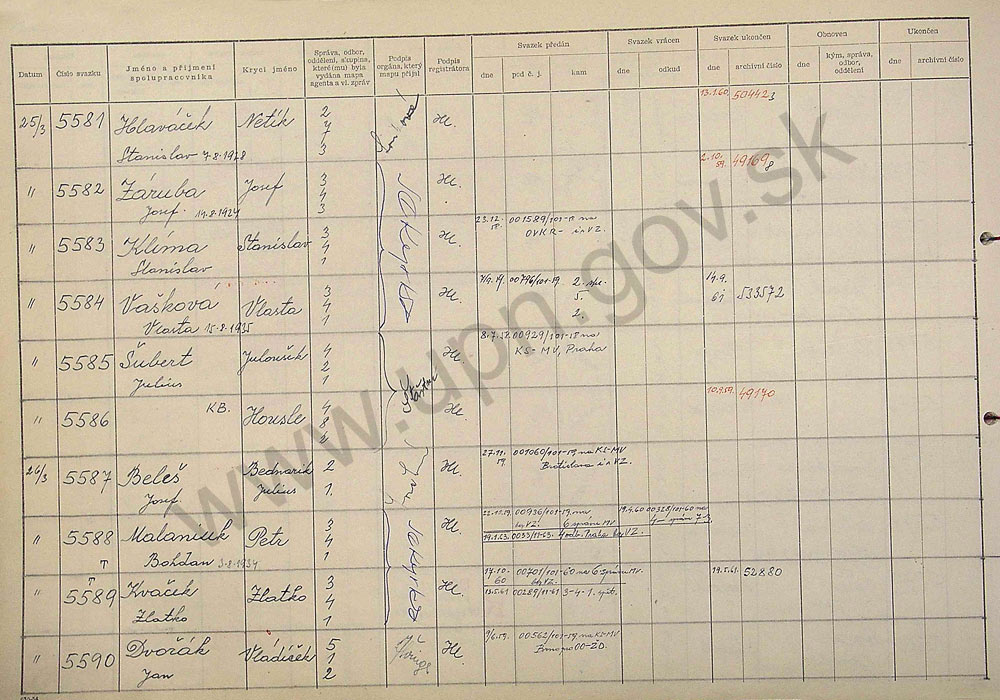 Datum
Číslo svazku
Jméno a příjmení spolupracovníka
Krycí jméno
Správa, odbor, oddělení, skupina, které(mu) byla vydána mapa agenta a vl. zpráv
Podpis orgána, který mapu přijal
Podpis registrátora
Svazek předán
dne
pod č. j.
kam
Svazek vrácen
dne
odkud
Svazek ukončen
dne
archivní číslo
Obnoven
dne
kým, správa, odbor, oddělení
Ukončen
dne
archivní číslo
25/3 5581 Hlaváček Netík 2 He. 13.1.60. 50442
Stanislav 7.8.1928 3
" 5582 Záruba Josef 3 4 3 He. 2.10.59. 49169
Josef 14.8.1924
" 5583 Klíma Stanislav 3 4 1 He. 23.12. 001589/101-18 na
Stanislav OVKR- in VZ.
" 5584 Vaškova Vlasta 3 4 1 He. 00796/101-19 2. 14.9. 61 533572
Vlasta 15.8.1935 5. 2.
" 5585 Šubert Juloušek 4 2 1 He. 8.7.58 00929/101-18 na
Julius KS-MV, Praha
" 5586 KB. Housle 4 8 He 10.9.59. 49170
26/3 5587 Beleš Bednarik 2 1. He. 27.11.59 001060/101-19 na KS-MV
Josef Julius Bratislava in VZ.
" 5588 Malaniuk Petr 3 4 1 He. 00936/101-19 na 19.4.60 00328/101-60 na
Bohdan 3.8.1934 6 správu MV
19.1.63. 0035/11-63. 4 odb. Praha bez VZ.
" 5589 Kvaček Zlatko 3 4 1 He. 17.10.60 00701/101-60 na 6 správu MV. 19.5.61. 52880
Zlatko 13.5.61 00289/11-61 3-4-1.
" 5590 Dvořák Vládíček 5 1 2 He 9/6.59. 00562/101-19 na KS-MV
Jan Brno
www.upn.gov.sk